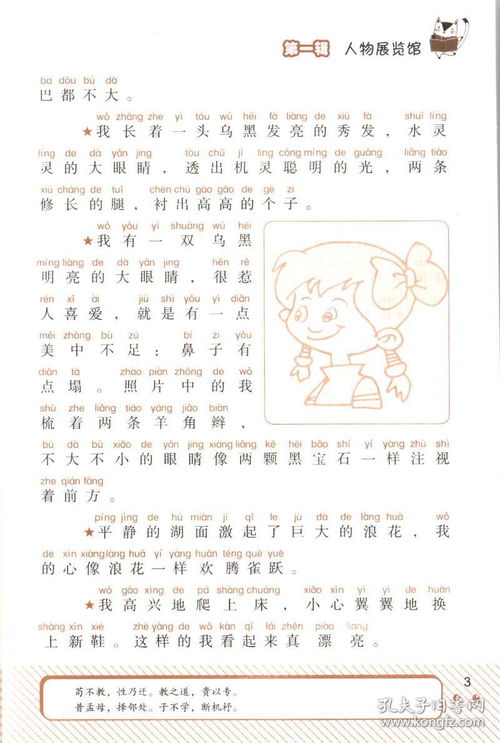 第一辑 人物展览馆
bā dōu bú dà
巴都不大。
wǒ zhǎng zhe yì tóu wū hēi fā liàng de xiù fà shuǐ líng
★我长着一头乌黑发亮的秀发，水灵
líng de dà yǎn jing tòu chū jī líng cōng míng de guāng liǎng tiáo
灵的大眼睛，透出机灵聪明的光，两条
xiū cháng de tuǐ chèn chū gāo gāo de gè zi
修长的腿，衬出高高的个子。
wǒ yǒu yì shuāng wū hēi
★我有一双乌黑
míng liàng de dà yǎn jing hěn rě
明亮的大眼睛，很惹
rén xǐ ài jiù shì yǒu yì diǎn
人喜爱，就是有一点
měi zhōng bù zú bí zi yǒu
美中不足：鼻子有
diǎn tā zhào piàn zhōng de wǒ
点塌。照片中的我
shū zhe liǎng tiáo yáng jiǎo biàn
梳着两条羊角辫，
bú dà bù xiǎo de yǎn jing xiàng liǎng kē hēi bǎo shí yí yàng zhù shì
不大不小的眼睛像两颗黑宝石一样注视
zhe qián fāng
着前方。
píng jìng de hú miàn jī qǐ le jù dà de làng huā wǒ
★平静的湖面激起了巨大的浪花，我
de xīn xiàng làng huā yí yàng huān téng què yuè
的心像浪花一样欢腾雀跃。
wǒ gāo xìng de pá shàng chuáng xiǎo xīn yì yì de huàn
★我高兴地爬上床，小心翼翼地换
shàng xīn xié zhè yàng de wǒ kàn qǐ lái zhēn piào liang
上新鞋。这样的我看起来真漂亮。
苟不教，性乃迁。教之道，贵以专。
昔孟母，择邻处。子不学，断机杼。
3
孔夫子旧书网
www.kongfz.com